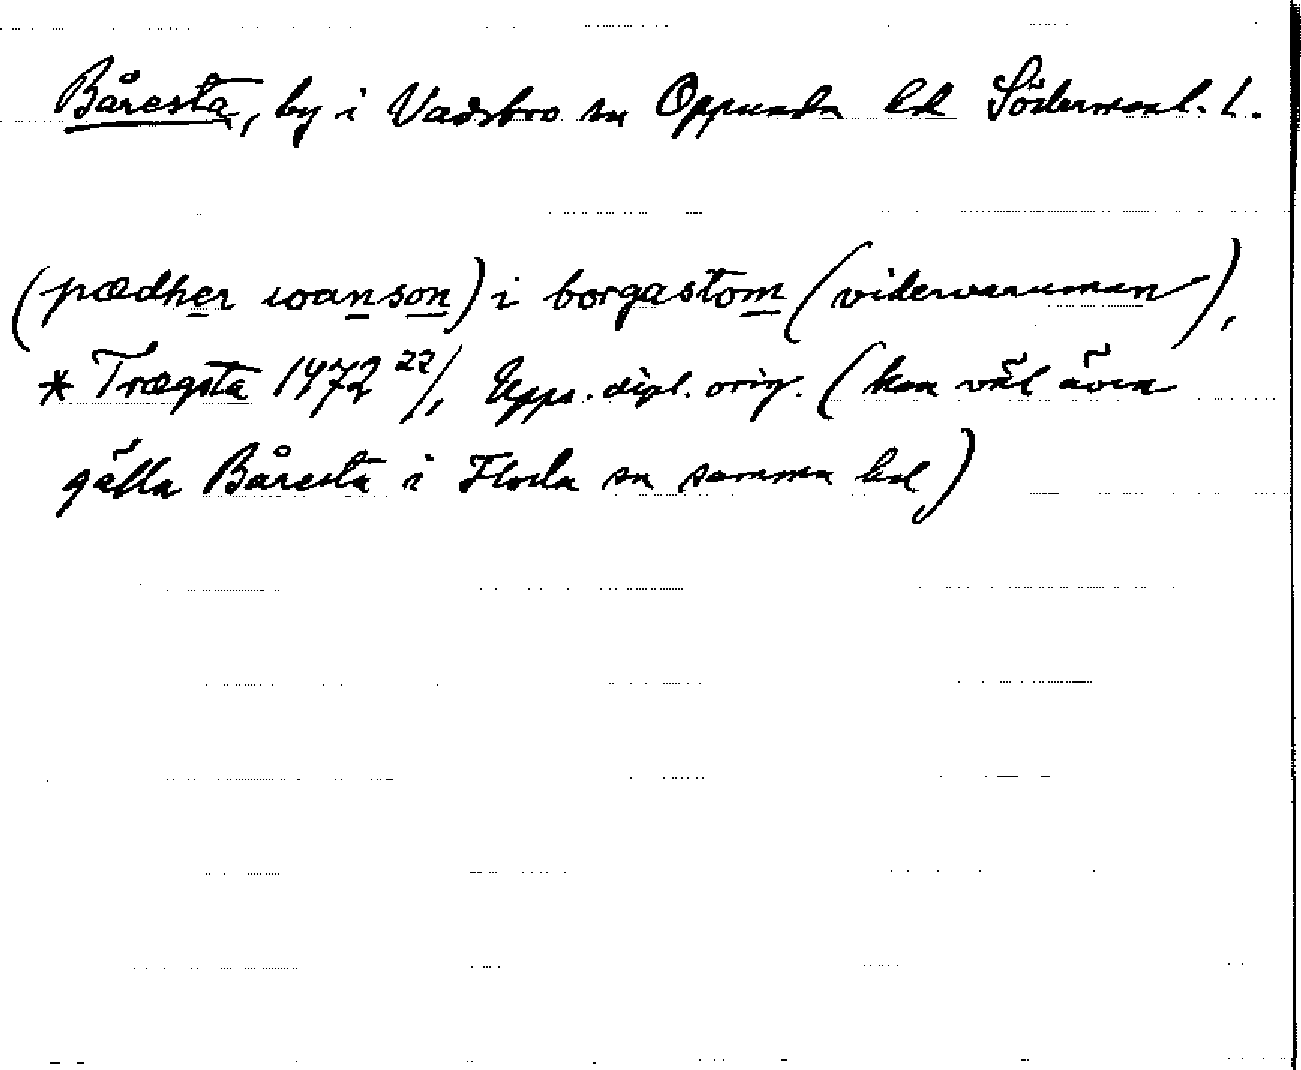 Båresta, by i Vadsbro sn Oppunda hd Södermanl. l.
(pædher ioanson) i borgastom (viderwaruman),
* Trægsta 1472 22/, Upps. dipl. orig. (kan väl även
gälla Båresta i Floda sn samma hd)